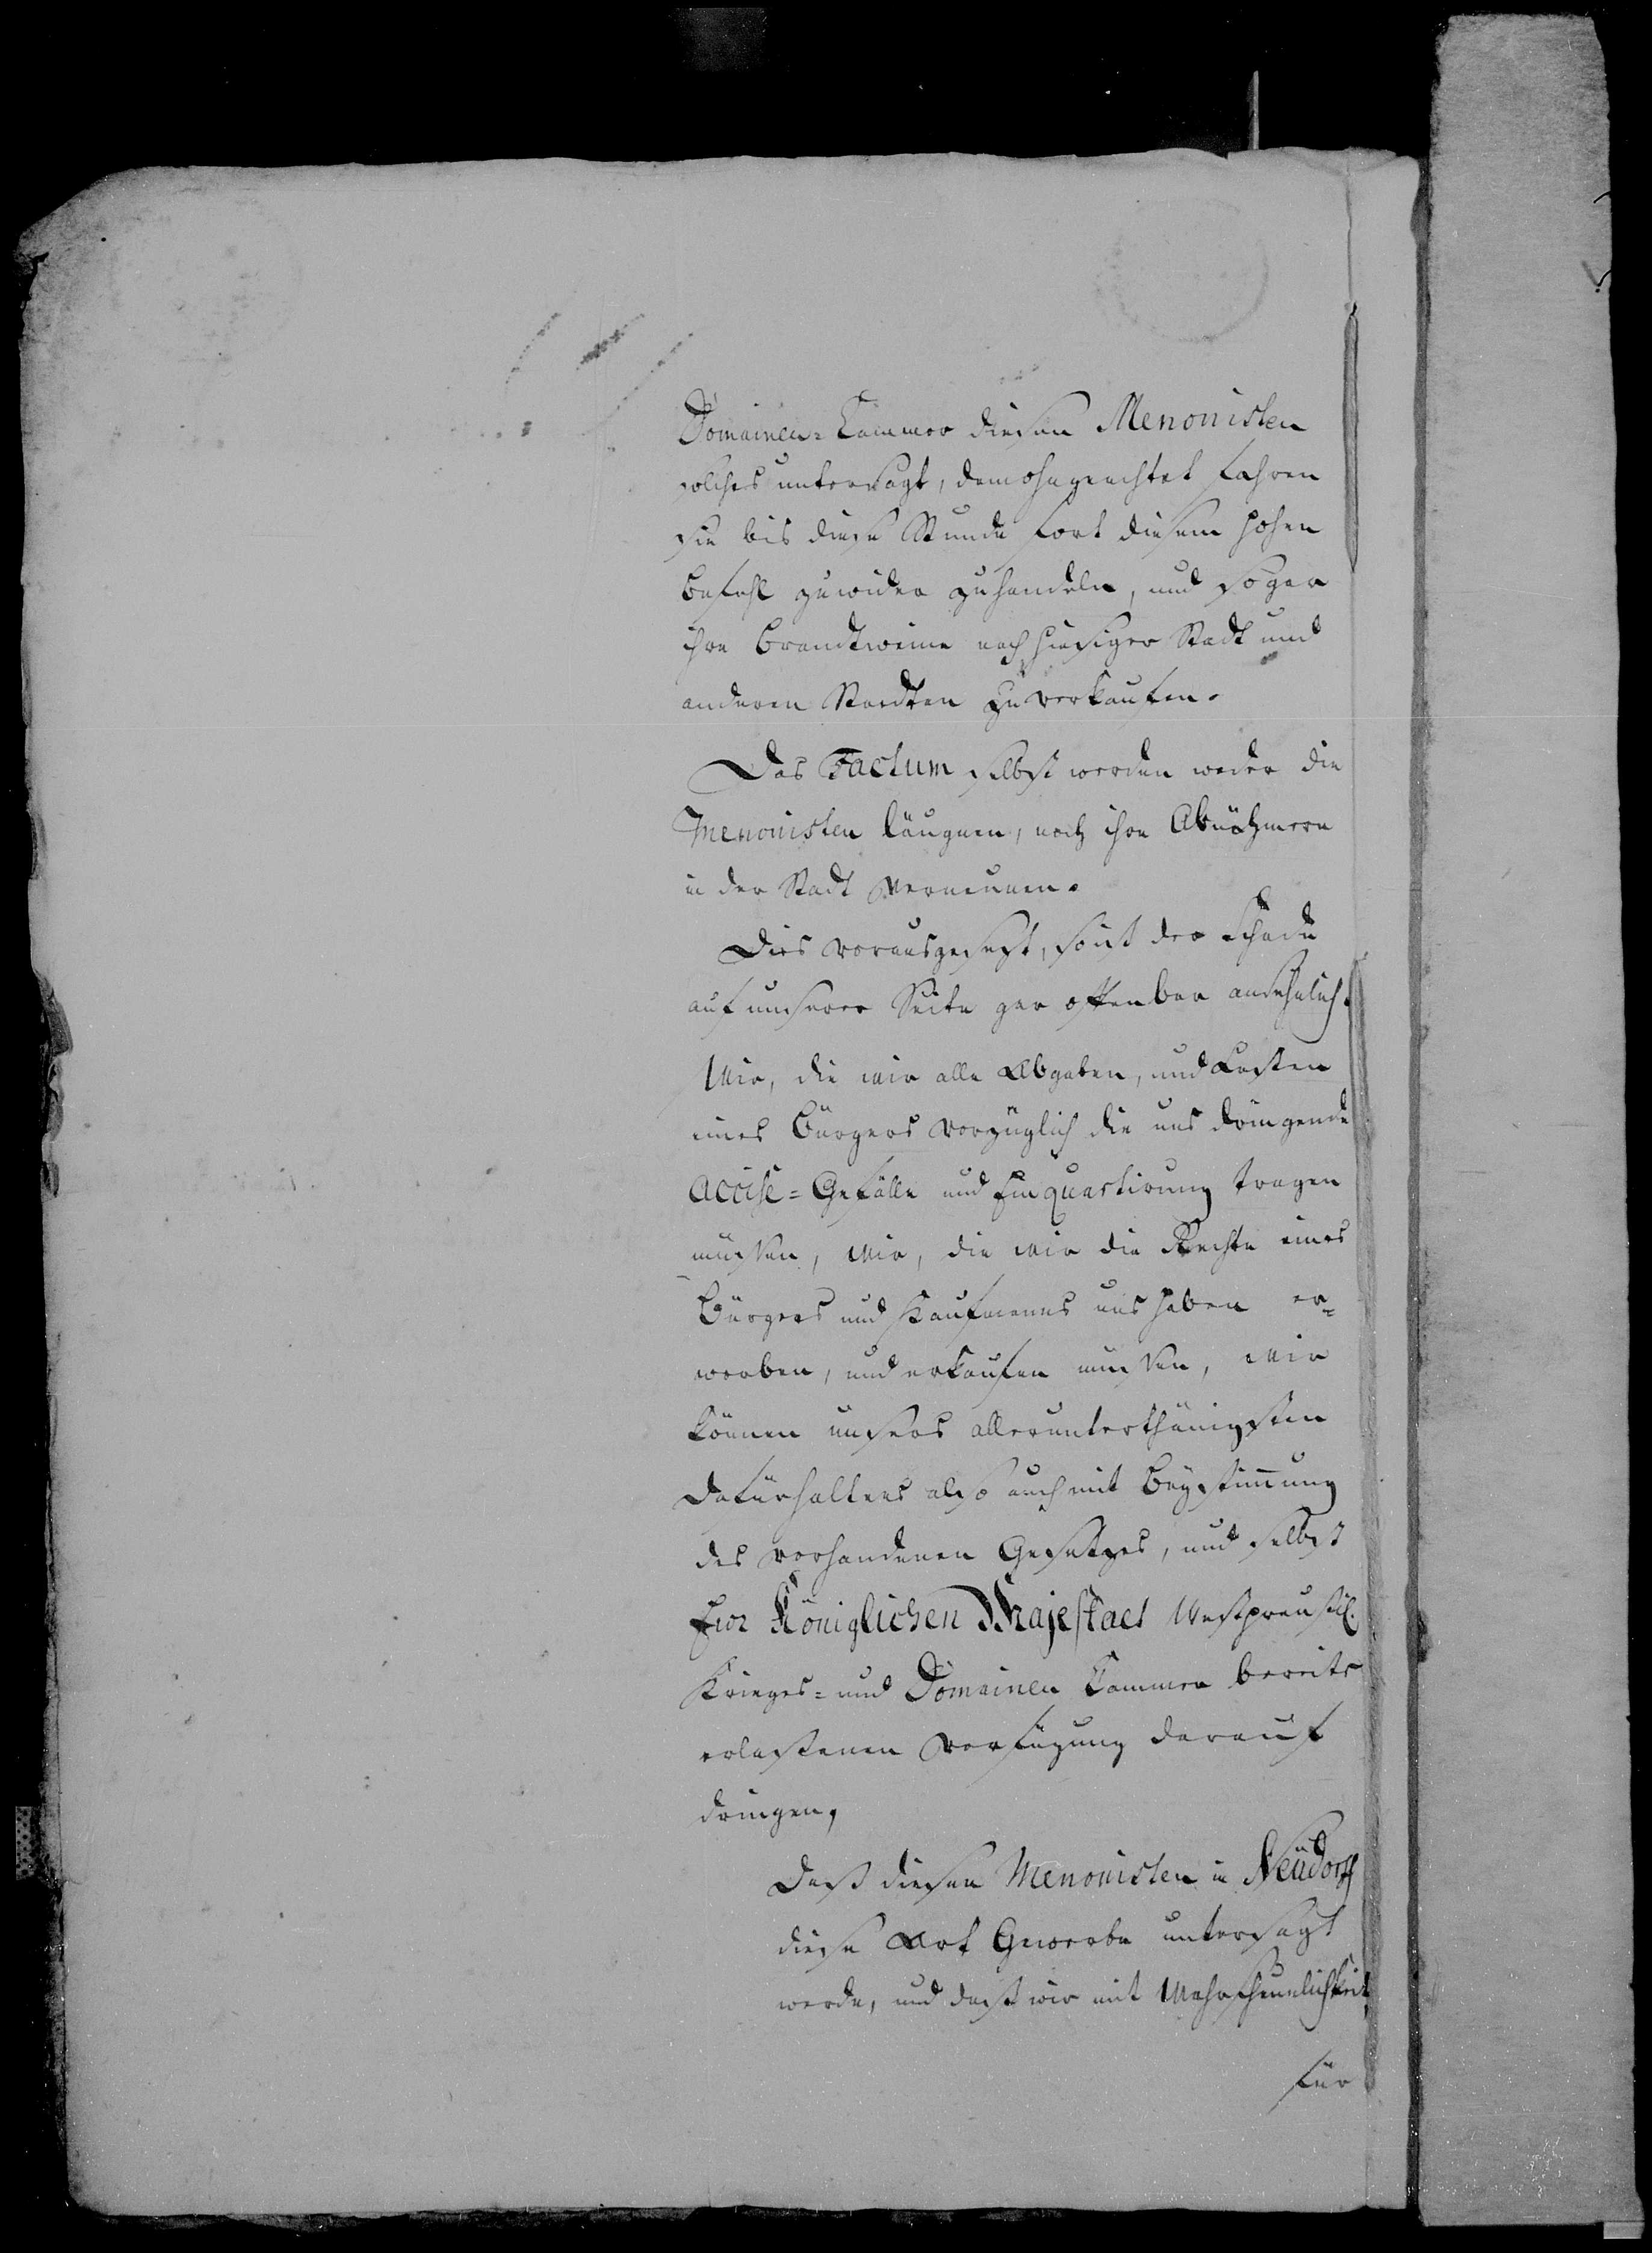 Domainen-Cammer diesen Menonisten
solches untersagt, demohngeachtet fahren
sie bis diese Stunde fort diesem hohen
Befehl zuwider zuhandeln, und sogar
ihre Brandtweine nach hiesiger Stadt und
anderen Staedten zu verkaufen.
Das Factum selbst werden weder die
Menonisten läugnen, noch ihre Abnähmere
in der Stadt verneinen.
Dies vorausgesezt, so ist der Schade
auf unserer Seite gar offenbar ansehnlich.
Wir, die wir alle Abgaben, und Lasten
eines Bürgers vorzüglich die uns dringende
Accise-Gefälle und Einquartirung tragen
müssen, Wir, die wir die Rechte eines
Bürgers und Kaufmanns uns haben er-
worben, und erkaufen müssen, Wir
können unsers allerunterthänigsten
Dafürhaltens also auch mit Beystimmung
des vorhandenen Gesetzes, und selbst
Eur Königlichen Majestaet Westpreussl.
Krieges- und Domainen Cammer bereits
erlassenen Verfügung darauf
dringen,
Dass diesen Menonisten in Neüdorff
diese Art Gewerbe untersagt
werde, und dass wir mit Wahrscheinlichkeit
für